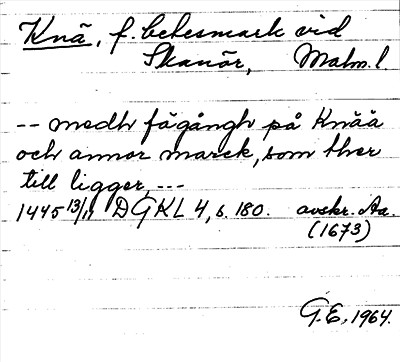 Knä, f. betesmark vid
Skanör, Malm. l
-- medh fägångh på Knää
och annor marck, som ther
till ligger, ---
1445 13/11 DGKL 4, s. 180. avskr. Aa.
(1673)
G.E, 1964.